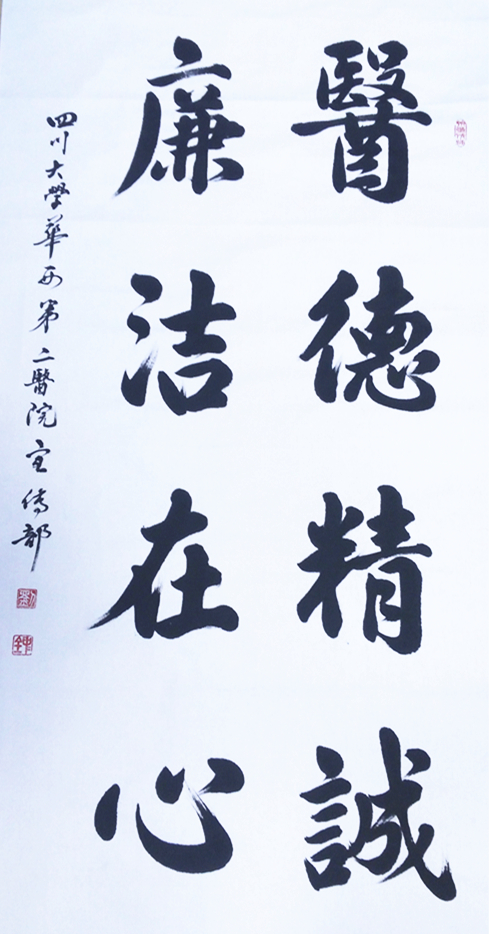 醫德精誠
廉洁在心
四川大學華西第二醫院宣傳部